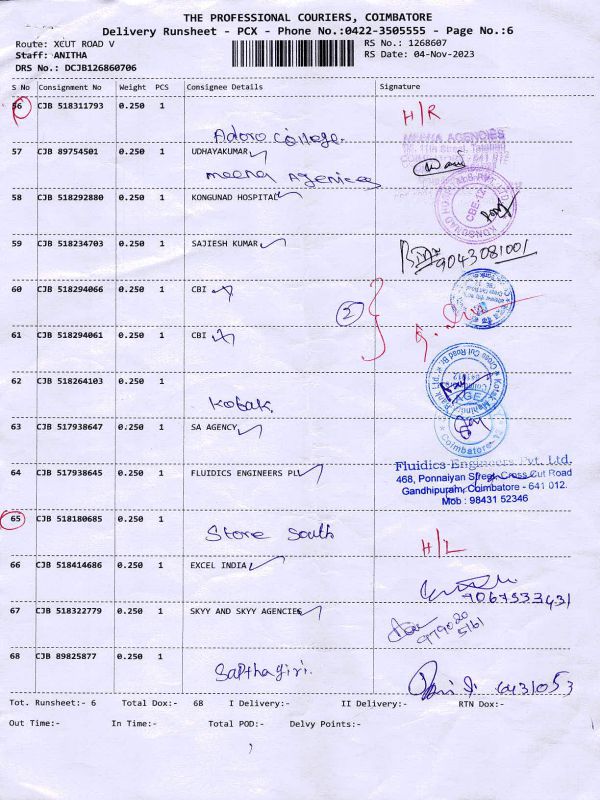 THE PROFESSIONAL COURIERS, COIMBATORE
Delivery Runsheet - PCX - Phone No.:0422-3505555 - Page No.:6
Route: XCUT ROAD V RS No.: 1268607
Staff: ANITHA RS Date: 04-Nov-2023
DRS No.: DCJB126860706
S No Consignment No Weight PCS Consignee Details Signature
56 CJB 518311793 0.250 1 H/R
Adoro College.
57 CJB 89754501 0.250 1 UDHAYAKUMAR
MEENA AGENCIES
meena Agencies
58 CJB 518292880 0.250 1 KONGUNAD HOSPITAL
59 CJB 518234703 0.250 1 SAJIESH KUMAR
9043081001
60 CJB 518294066 0.250 1 CBI
2
61 CJB 518294061 0.250 1 CBI
62 CJB 518264103 0.250 1
Kotak
63 CJB 517938647 0.250 1 SA AGENCY
Coimbatore
64 CJB 517938645 0.250 1 FLUIDICS ENGINEERS PLL
Fluidics Engineers Pvt. Ltd.
468, Ponnaiyan Street, Cross Cut Road
Gandhipuram, Coimbatore - 641 012.
Mob : 98431 52346
65 CJB 518180685 0.250 1
Store South
H/L
66 CJB 518414686 0.250 1 EXCEL INDIA
9067533431
67 CJB 518322779 0.250 1 SKYY AND SKYY AGENCIES
979020
5161
68 CJB 89825877 0.250 1
Sapthagiri.
Tot. Runsheet:- 6 Total Dox:- 68 I Delivery:- II Delivery:- RTN Dox:-
Out Time:- In Time:- Total POD:- Delvy Points:-